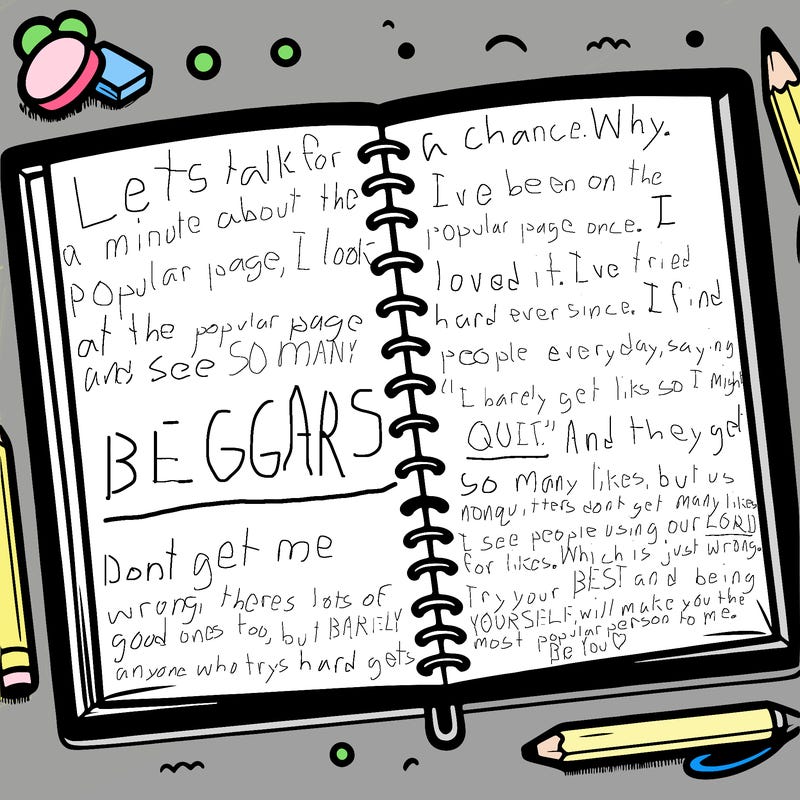 Lets talk for
a minute about the
popular page, I look
at the popular page
and see SO MANY
BEGGARS
Dont get me
wrong, theres lots of
good ones too, but BARELY
anyone who trys hard gets
a chance. Why.
Ive been on the
popular page once. I
loved it. Ive tried
hard ever since. I find
people everyday, saying
"I barely get liks so I might
QUIT." And they get
so many likes, but us
nonquitters dont get many likes
I see people using our LORD
for likes. Which is just wrong.
Try your BEST and being
YOURSELF, will make you the
most popular person to me.
Be You♡